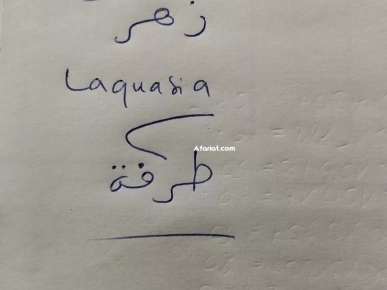 زهر
Laquasia
طرفة
Afariat.com